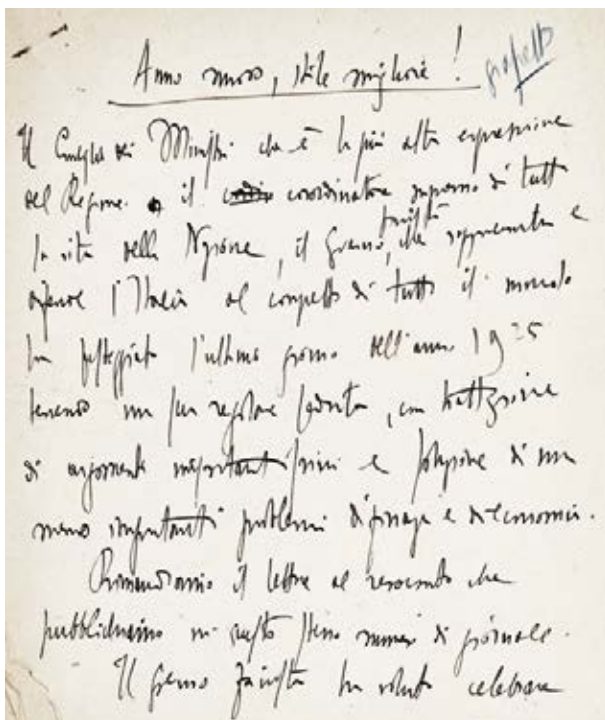 Anno nuovo, stile migliore!
grassetto
Il Consiglio dei Ministri che è la più alta espressione
del Regime e il coordinatore supremo di tutta
la vita della Nazione, il Governo fascista che rappresenta e
difende l'Italia al cospetto di tutto il mondo
ha festeggiato l'ultimo giorno dell'anno 1925
tenendo una sua regolare seduta, con trattazione
di argomenti importantissimi e soluzione di non
meno importanti problemi di finanza e di economia.
Rimandiamo il lettore al resoconto che
pubblichiamo in questo stesso numero di giornale.
Il governo fascista ha voluto celebrare